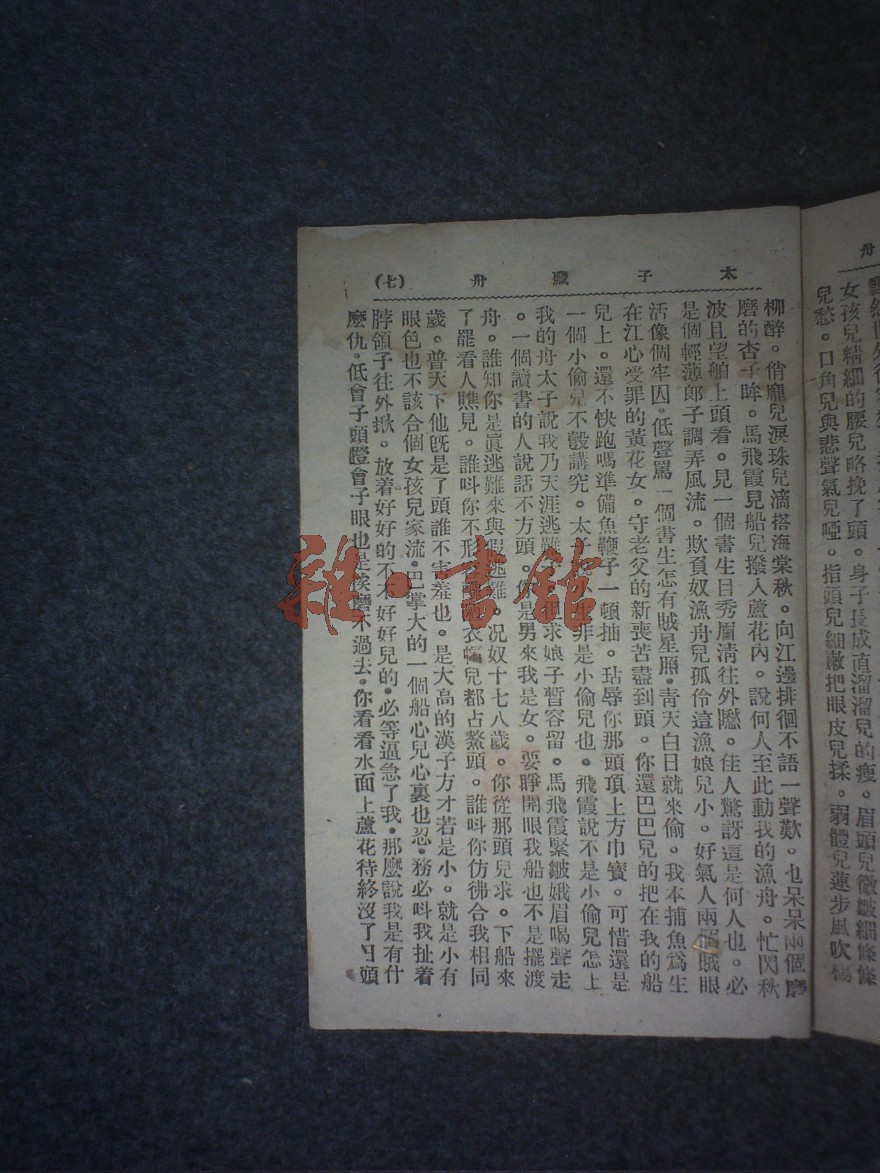 舟
女孩兒精細的腰兒略挽了頭。身子長成直溜溜兒的瘦。眉頭兒微皺細條條
兒愁。口角兒與悲聲氣兒啞。指頭兒細嫩把眼皮兒揉。弱體兒蓮步風吹
太子藏舟 (七)
柳醉。俏龐兒淚珠兒滴搭海棠秋。向江邊排徊不語一聲歎。也呆呆兩個磨
磨的杏子眸。馬飛霞見船兒撥入蘆花內。說何人至此動我的漁舟。忙閃秋
波且望船上頭看。見一個書生目秀眉淸往外瞧。佳人驚訝這是何人也。必
是個輕薄郎子調弄風流。欺負奴漁舟兒孤伶這漁娘兒小。好氣人兩個賊眼
活像個牢囚。低聲罵一個書生怎有賊星照。靑天白日就來偷。我本捕魚爲生
在江心受罪的黃花女。守老父的新喪苦盡到頭。你還巴巴兒的把在我的船
兒上。還不快跑嗎準備魚鞭子一頓抽。玷辱你那頭頂上方巾寶。可惜還是
一個小偷兒不彀講究。太子小生非是小偷兒也。飛霞說不是小偷兒怎上
我的舟太子說我乃天涯逃難 但求娘子暫容留。馬飛霞緊皺娥眉喝聲走
。一個讀書的人說話不方頭。你是男來我是女。要睜開眼我船也不是擺渡
舟。誰知你是眞逃難來與假逃難。況奴十七八歲。你從那頭兒求。下船來
了罷看人瞧見。誰呌你不形 衣帽兒都占鰲頭。誰呌你仿彿合我相同
歲。普天下他旣是了頭誰不害羞也。是大高的漢子方才若是小。就是小有
眼色也不該合個女孩兒家流。巴掌大的一個船心兒心裏也忍。務必呌我扯着
脖領子往外揪。放着好好的不木好好兒的。必等逼急了我。那麼說我是有什
麼仇。低會子頭瞪會子眼也是挨磨不過去。你看看水面上蘆花待終沒了日頭
雜·書館